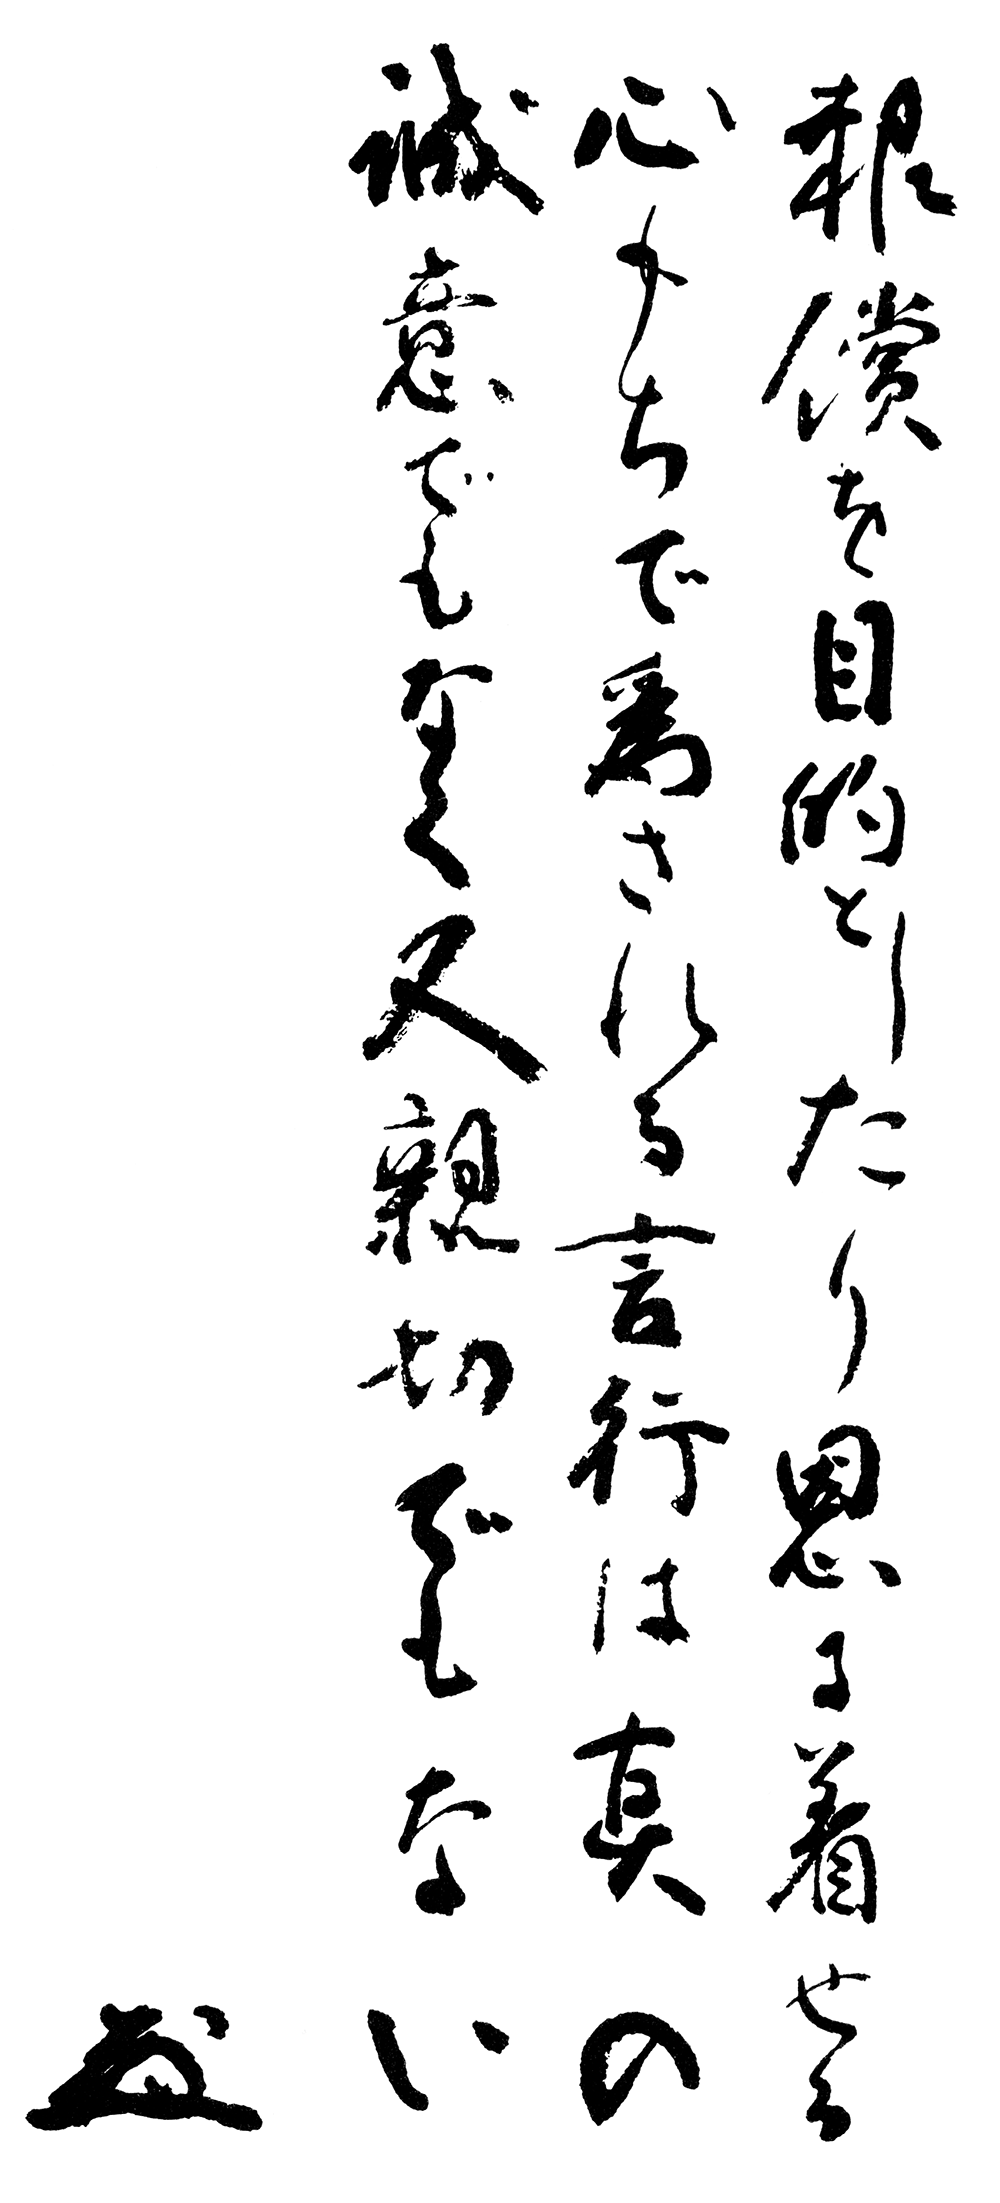 報償を目的としたり恩に着せる
心もちで為される言行は真の
誠意でもなく又親切でもない